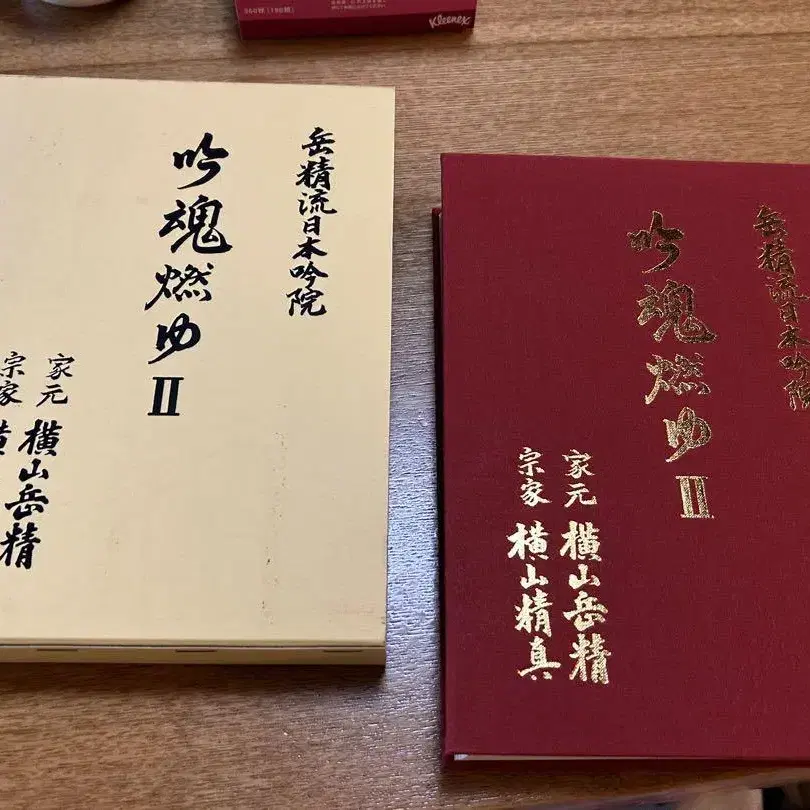 360枚(180組)
Kleenex
岳精流日本吟院
吟魂燃ゆ II
家元 横山岳精
宗家 横
岳精流日本吟院
吟魂燃ゆ II
家元 横山岳精
宗家 横山精真